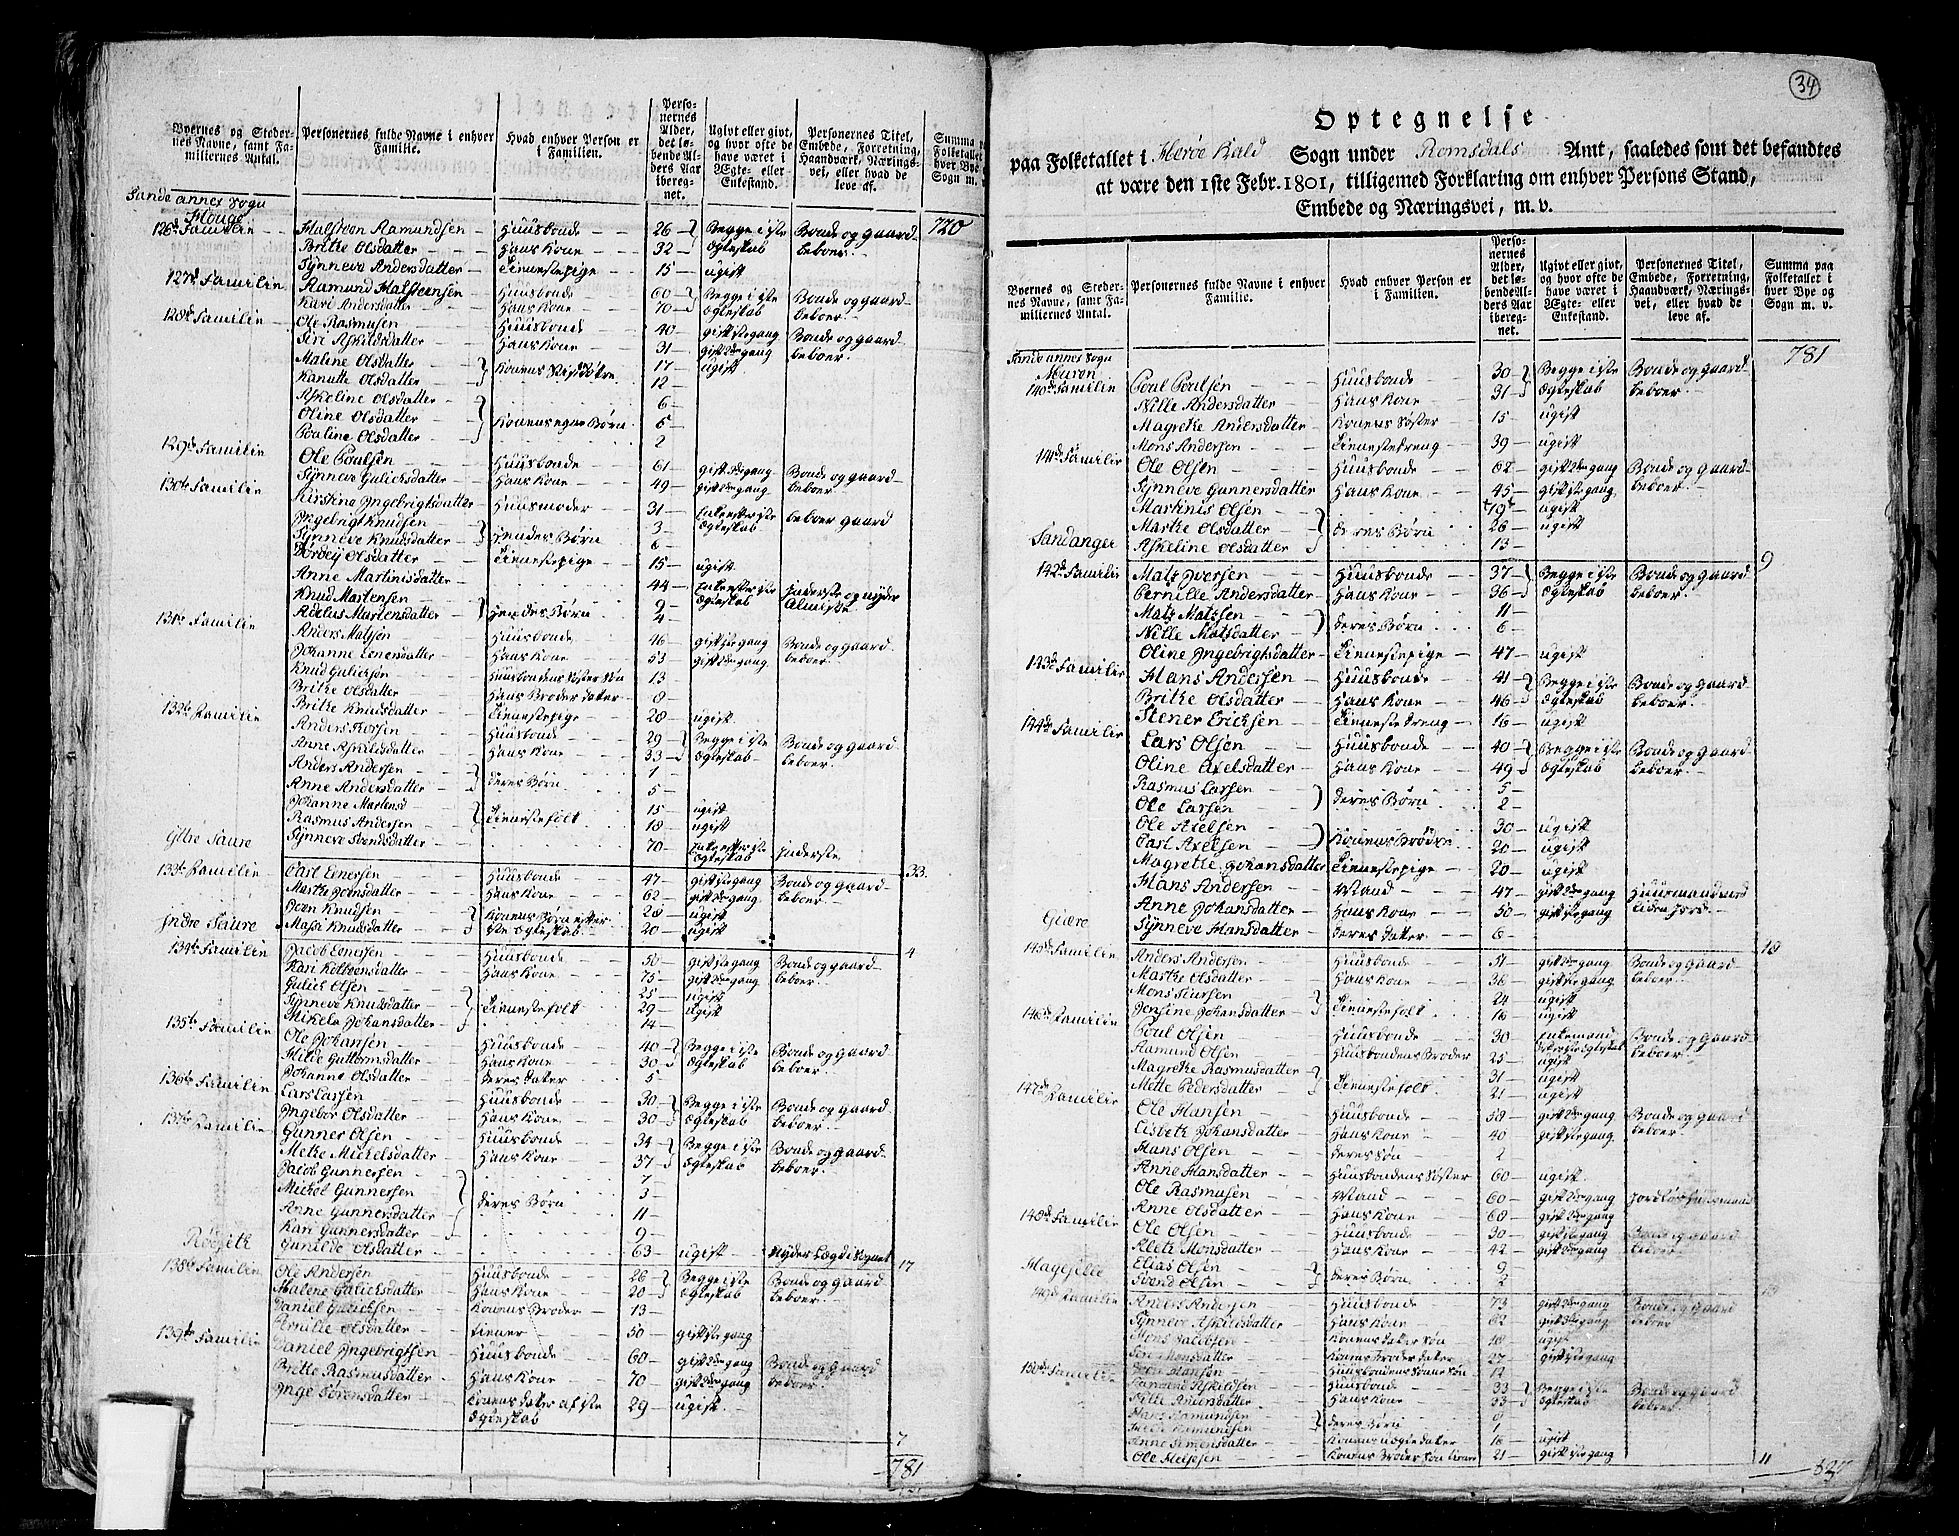 34
Byernes og Stedernes Navne, samt Familiernes Antal.
Personernes fulde Navne i enhver Familie.
Hvad enhver Person er i Familien.
Personernes Alder, det løbende Alders Aar iberegnet.
Ugivt eller givt, og hvor ofte de have været i Ægte- eller Enkestand.
Personernes Titel, Embede, Forretning, Haandværk, Næringsvei, eller hvad de leve af.
Summa Folketallet hver Bye Sogn m.
Sande annex Sogn
Houge
720
126de Familie Halsteen Ramundsen Huusbonde 26 Begge i 1ste Ægteskab Bonde og Gaardbeboer
Brithe Olsdatter Hans Kone 32
Synneve Andersdatter Tienestepige 15 ugift
127de Familie Ramund Halsteensen Huusbonde 60 Begge i 1ste Ægteskab Bonde og Gaardbeboer
Kari Andersdatter Hans Kone 70
128de Familie Ole Rasmusen Huusbonde 40 gift 1ste gang Bonde og Gaardbeboer
Siri Askildsdatter Hans Kone 31 gift 2den gang
Malene Olsdatter 17 ugift
Kanutte Olsdatter 12
Askeline Olsdatter 6
Oline Olsdatter Konens egne Børn 5
Pouline Olsdatter 2
129de Familie Ole Poulsen Huusbonde 61 gift 2den gang Bonde og Gaardbeboer
Synneve Gulichsdatter Hans Kone 49 gift 2den gang
130te Familie Kirstine Ingebrigtsdatter Huusmoder 31 Enke efter 1ste Ægteskab beboer Gaard
Ingebrigt Knudsen 3
Synneve Knudsdatter Hendes Børn 6
Olsdatter Tienestepige 15 ugift
Anne Martinisdatter 44 Enke efter 1ste Ægteskab Inderste og nyder Almisse
Knud Martensen 9
Martensdatter Hendes Børn 4
131te Familie Anders Matsen Huusbonde 46 gift 1ste gang Bonde og Gaardbeboer
Johanne Enersdatter Hans Kone 53 gift 2den gang
Knud Gulichsen Huusbondens Søster Søn 13
Brithe Olsdatter Hans Broder Datter 8
Britke Knudsdatter Tienestepige 28 ugift
132te Familie Anders Huusbonde 29 Begge i 1ste Ægteskab Bonde og Gaardbeboer
Anne Askildsdatter Hans Kone 33
Anders Andersen 1
Anne Andersdatter deres Børn 5
Johanne Martensd 15 ugift
Rasmus Andersen Tienestefolk 18 ugift
Synneve Svendsdatter 70 Enke efter 1ste Ægteskab Inderste
33
Ytre Saure
133te Familie Carl Enersen Huusbonde 47 gift 1ste gang Bonde og Gaardbeboer
Marthe Jonsdatter Hans Kone 62 gift 2den gang
Joen Knudsen Konens Børn efter 1ste Ægteskab 28 ugift
Massi Knudsdatter 20 ugift
4
Indre Saure
134te Familie Jacob Enersen Huusbonde 50 gift 1ste gang Bonde og Gaardbeboer
Kari Kolbeensdatter Hans Kone 75 gift 2den gang
Gulich Olsen 25 ugift
Synneve Knudsdatter Tienestefolk 29 ugift
Johansdatter 14
135te Familie Ole Johansen Huusbonde 40 Begge i 1ste Ægteskab Bonde og Gaardbeboer
Hilde Guttormsdatter Hans Kone 30
Johanne Olsdatter deres Datter 5
136te Familie Lars Larsen Huusbonde 30 Begge i 1ste Ægteskab Bonde og Gaardbeboer
Ingebor Olsdatter Hans Kone 30
137te Familie Gunner Olsen Huusbonde 34 Begge i 1ste Ægteskab Bonde og Gaardbeboer
Mette Mickelsdatter Hans Kone 37
Jacob Gunnersen 7
Michel Gunnersen deres Børn 3
Anne Gunnersdatter 11
Kari Gunnersdatter 9
Gunilde Olsdatter 63 ugift Nyder Lægd i Sognet
17
138te Familie Ole Andersen Huusbonde 26 Begge i 1ste Ægteskab Bonde og Gaardbeboer
Malene Gulichsdatter Hans Kone 20
Daniel Gulichsen Konens Broder 13
Olsdatter tiener 50 gift 1ste gang
139te Familie Daniel Ingebrigtsen Huusbonde 60 gift 2den gang Bonde og Gaardbeboer
Britte Rasmusdatter Hans Kone 70 gift 2den gang
Inge Sørensdatter Konens Datter af 1ste Ægteskab 29 ugift
7
781
Optegnelse
paa Folketallet i Herøe Kald Sogn under Romsdals Amt, saaledes som det befandtes
at være den 1ste Febr. 1801, tilligemed Forklaring om enhver Persons Stand,
Embede og Næringsvei, m. v.
Byernes og Stedernes Navne, samt Familiernes Antal.
Personernes fulde Navne i enhver Familie.
Hvad enhver Person er i Familien.
Personernes Alder, det løbende Alders Aar iberegnet.
Ugivt eller givt, og hvor ofte de have været i Ægte- eller Enkestand.
Personernes Titel, Embede, Forretning, Haandværk, Næringsvei, eller hvad de leve af.
Summa paa Folketallet i hver Bye og Sogn m. v.
Sande annex Sogn
781
140de Familie Poul Poulsen Huusbonde 30 Begge i 1ste Ægteskab Bonde og Gaardbeboer
Nille Andersdatter Hans Kone 31
Magrethe Andersdatter Konens Søster 15 ugift
Mons Andersen Tienestedreng 39 ugift
141de Familie Ole Olsen Huusbonde 62 gift 2den gang Bonde og Gaardbeboer
Synneve Gunnersdatter Hans Kone 45 gift 1ste gang
Martinis Olsen ugift
Marthe Olsdatter deres Børn 26 ugift
Askeline Olsdatter 13
9
Sandanger
142de Familie Mats Iversen Huusbonde 37 Begge i 1ste Ægteskab Bonde og Gaardbeboer
Pernille Andersdatter Hans Kone 36
Mats Matsen 11
Nille Matsdatter deres Børn 6
Oline Ingebrigtsdatter Tienestepige 47 ugift
143de Familie Hans Andersen Huusbonde 41 Begge i 1ste Ægteskab Bonde og Gaardbeboer
Brithe Olsdatter Hans Kone 46
Stener Ericksen Tienestedreng 16 ugift
144de Familie Lars Olsen Huusbonde 40 Begge i 1ste Ægteskab Bonde og Gaardbeboer
Oline Axelsdatter Hans Kone 49
Rasmus Larsen 5
Ole Larsen deres Børn 2
Ole Axelsen 30 ugift
Carl Axelsen Konens Brødre 20 ugift
Magrethe Johansdatter Tienestepige 20 ugift
Hans Andersen Mand 47 gift 2den gang Huusmand med liden Jord
Anne Johansdatter Hans Kone 50 gift 1ste gang
Synneve Hansdatter deres Datter 6
Giære
145de Familie Anders Andersen Huusbonde 51 gift 2den gang Bonde og Gaardbeboer
Marthe Olsdatter Hans Kone 36 gift 1ste gang
Mons 24 ugift
Jensine Johansdatter Tienestefolk 16 ugift
146de Familie Poul Olsen Huusbonde 30 Enkemand Bonde og Gaardbeboer
Ramund Olsen Huusbondens Broder 25 ugift
Magrethe Rasmusdatter 31 ugift
Mette Pedersdatter Tienestefolk 21 ugift
147de Familie Ole Hansen Huusbonde 58 gift 2den gang Bonde og Gaardbeboer
Lisbeth Johansdatter Hans Kone 40 gift 1ste gang
Hans Olsen deres Søn 2
Anne Hansdatter Huusbondens Søster 60 ugift
Ole Rasmusen Mand 60 gift 2den gang Jordløs Huusmand
Anne Olsdatter Hans Kone 68 gift 2den gang
148de Familie Ole Olsen Huusbonde 30 gift 1ste gang Bonde og Gaardbeboer
Monsdatter Hans Kone 42 gift 2den gang
Elias Olsen 9
Svend Olsen deres Børn 2
149de Familie Anders Andersen Huusbonde 73 gift 2den gang Bonde og Gaard beboer
Synneve Askildsdatter Hans Kone 62 gift 2den gang
Mons Jacobsen Konens Datter Søn ugift
Monsdatter Konens Broder Datter 27 gift 1ste gang
Hansen Huusbondens Sønne Søn 12
150de Familie Ramund Askildsen Huusbonde 33 Begge i 1ste Ægteskab Bonde og Gaard beboer
Andersdatter Hans Kone 33
Hans Ramundsen
Ramundsen deres Børn 1
Anne Simensdatter Konens uægte Datter ugift
Ole Konens Broder Søn 21 gift 1ste gang
11